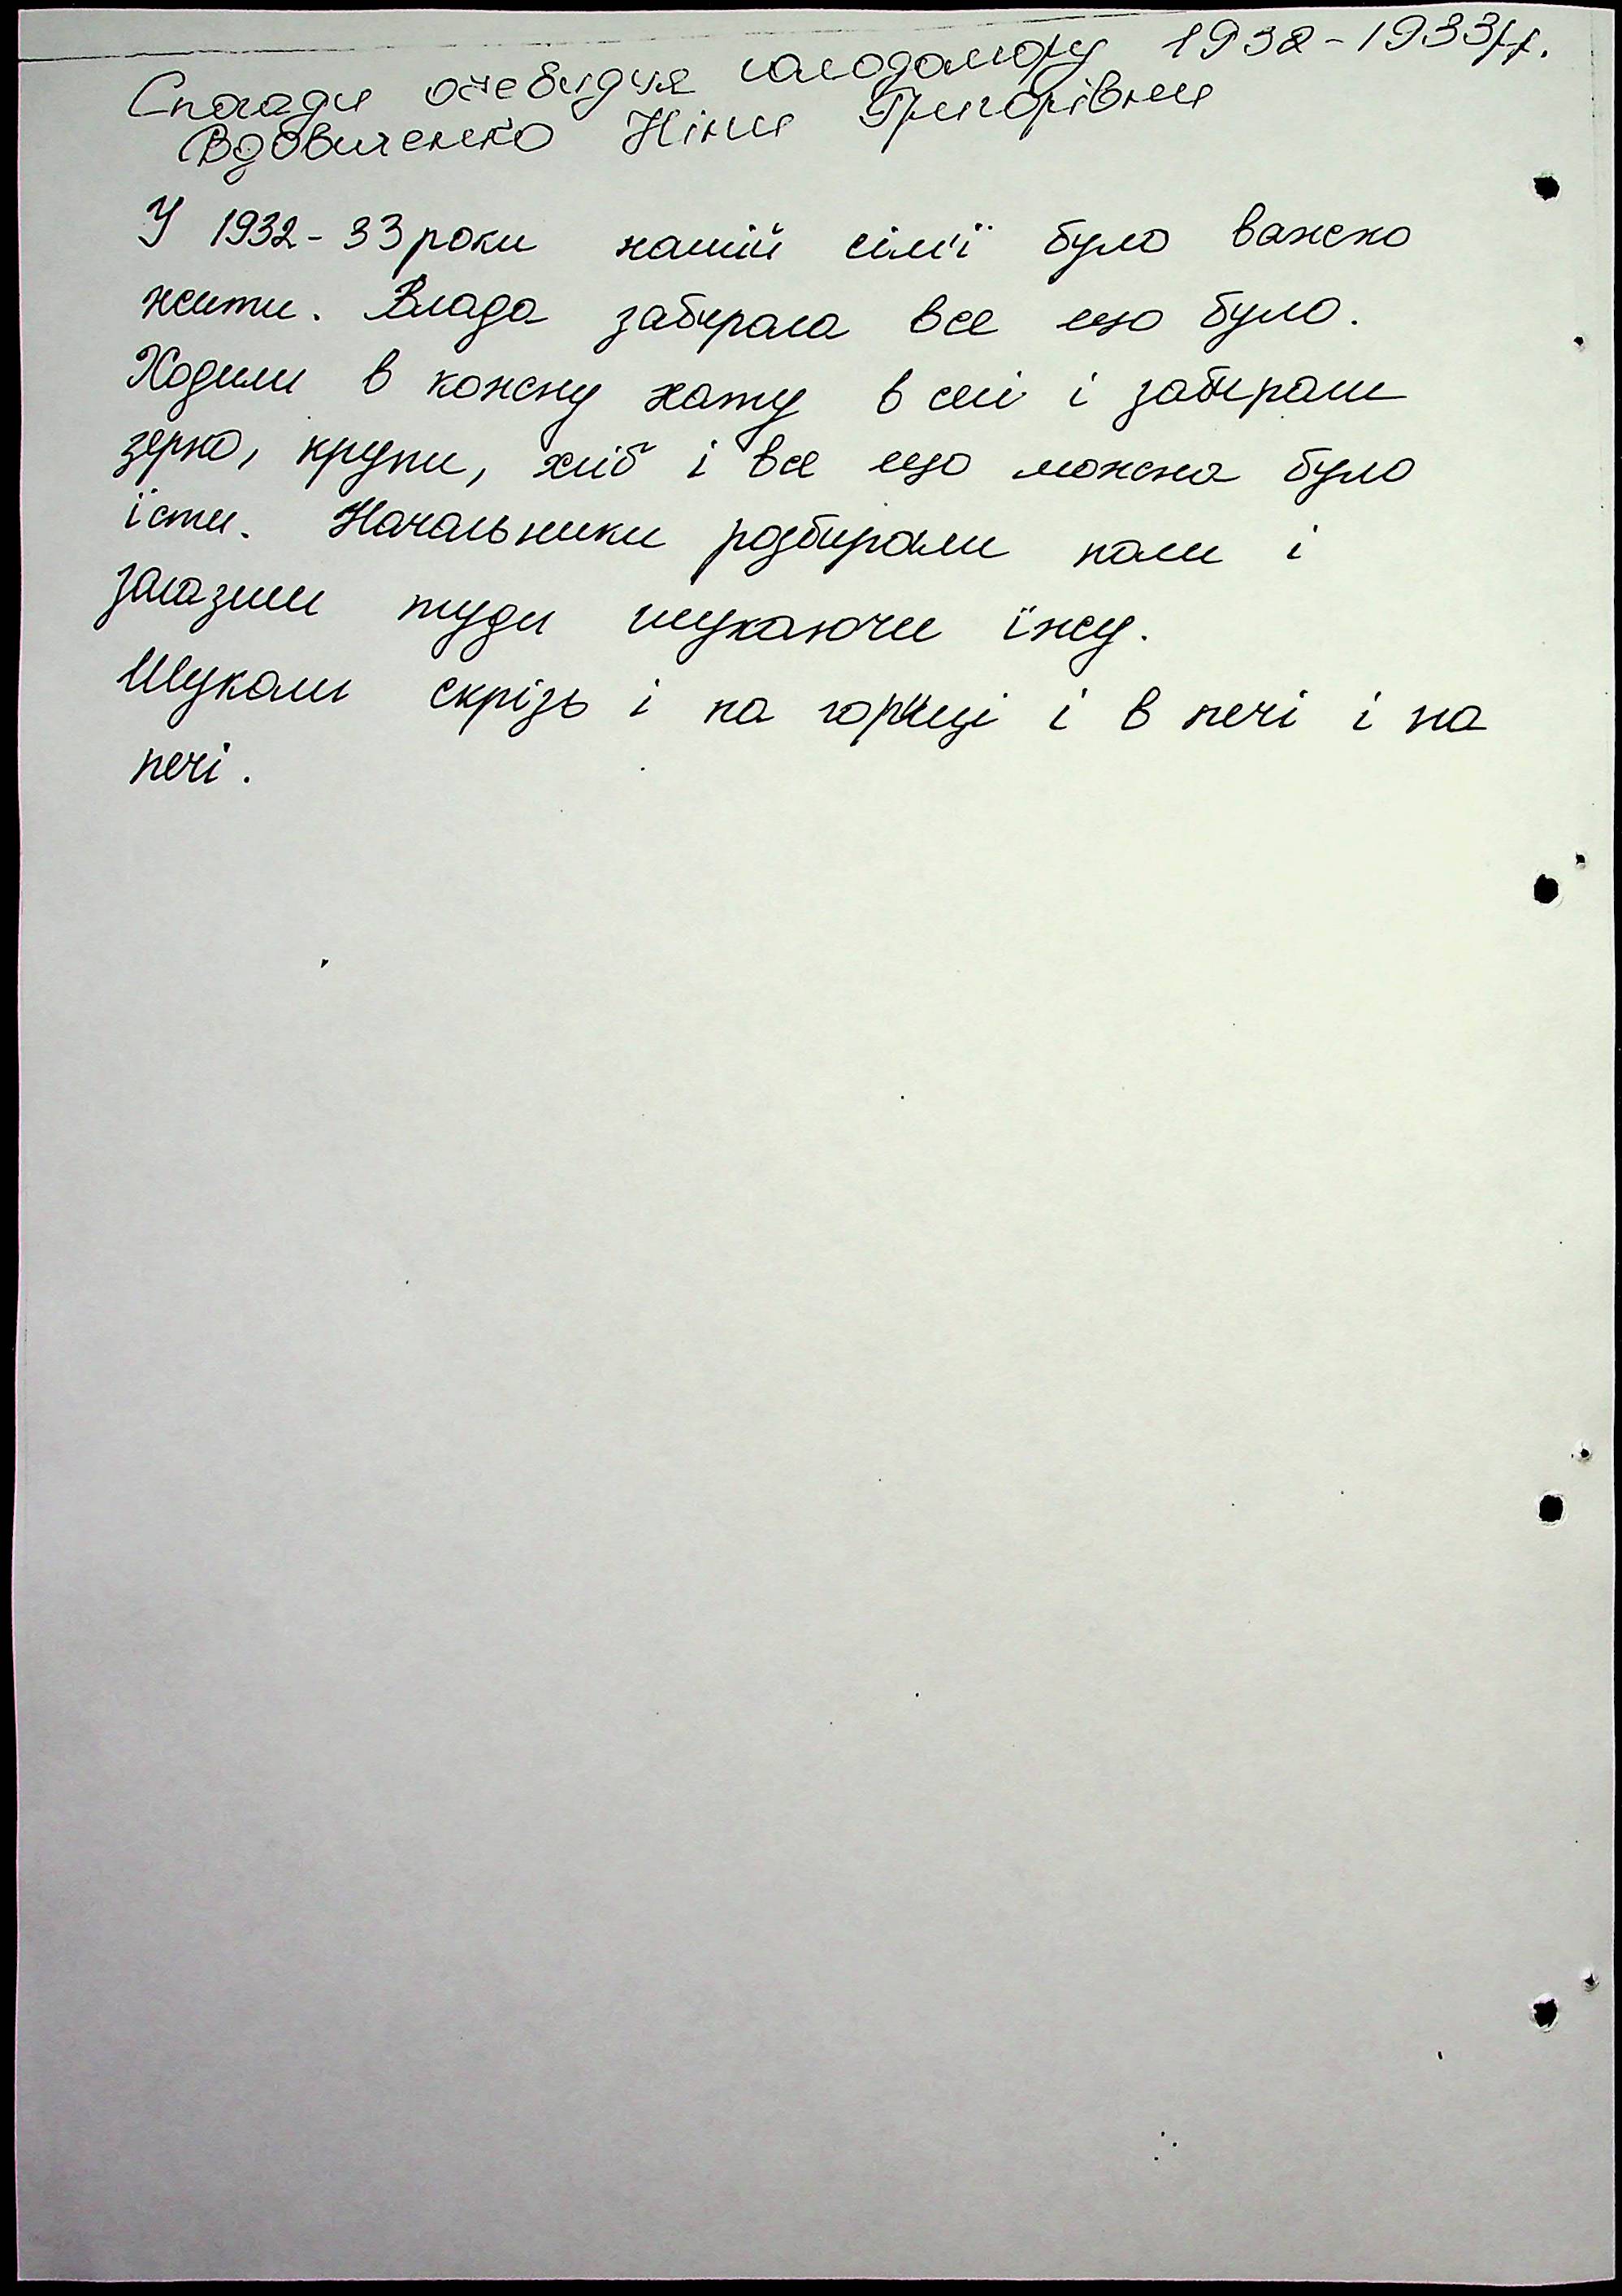 Спогади очевидця голодомору 1932-1933рр.
Вдовиченко Ніни Григорівни
У 1932-33 роки нашій сім'ї було важко
жити. Влада забирала все що було.
Ходили в кожну хату в селі і забирали
зерно, крупи, хліб і все що можна було
їсти. Начальники розбирали поли і
залазили туди шукаючи їжу.
Шукали скрізь і на горищі і в печі і на
печі.